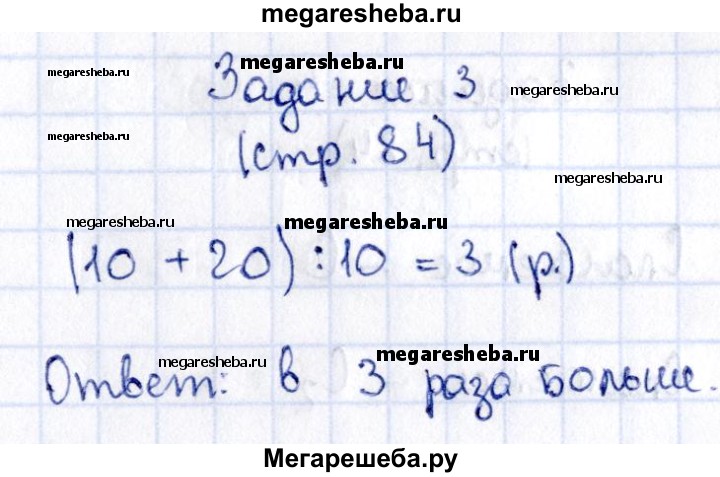 megaresheba.ru
megaresheba.ru megaresheba.ru
Задание 3 megaresheba.ru
megaresheba.ru
(стр. 84)
megaresheba.ru
megaresheba.ru megaresheba.ru
(10 + 20) : 10 = 3 (р.)
megaresheba.ru megaresheba.ru
Ответ: в 3 раза больше.
Мегарешеба.ру